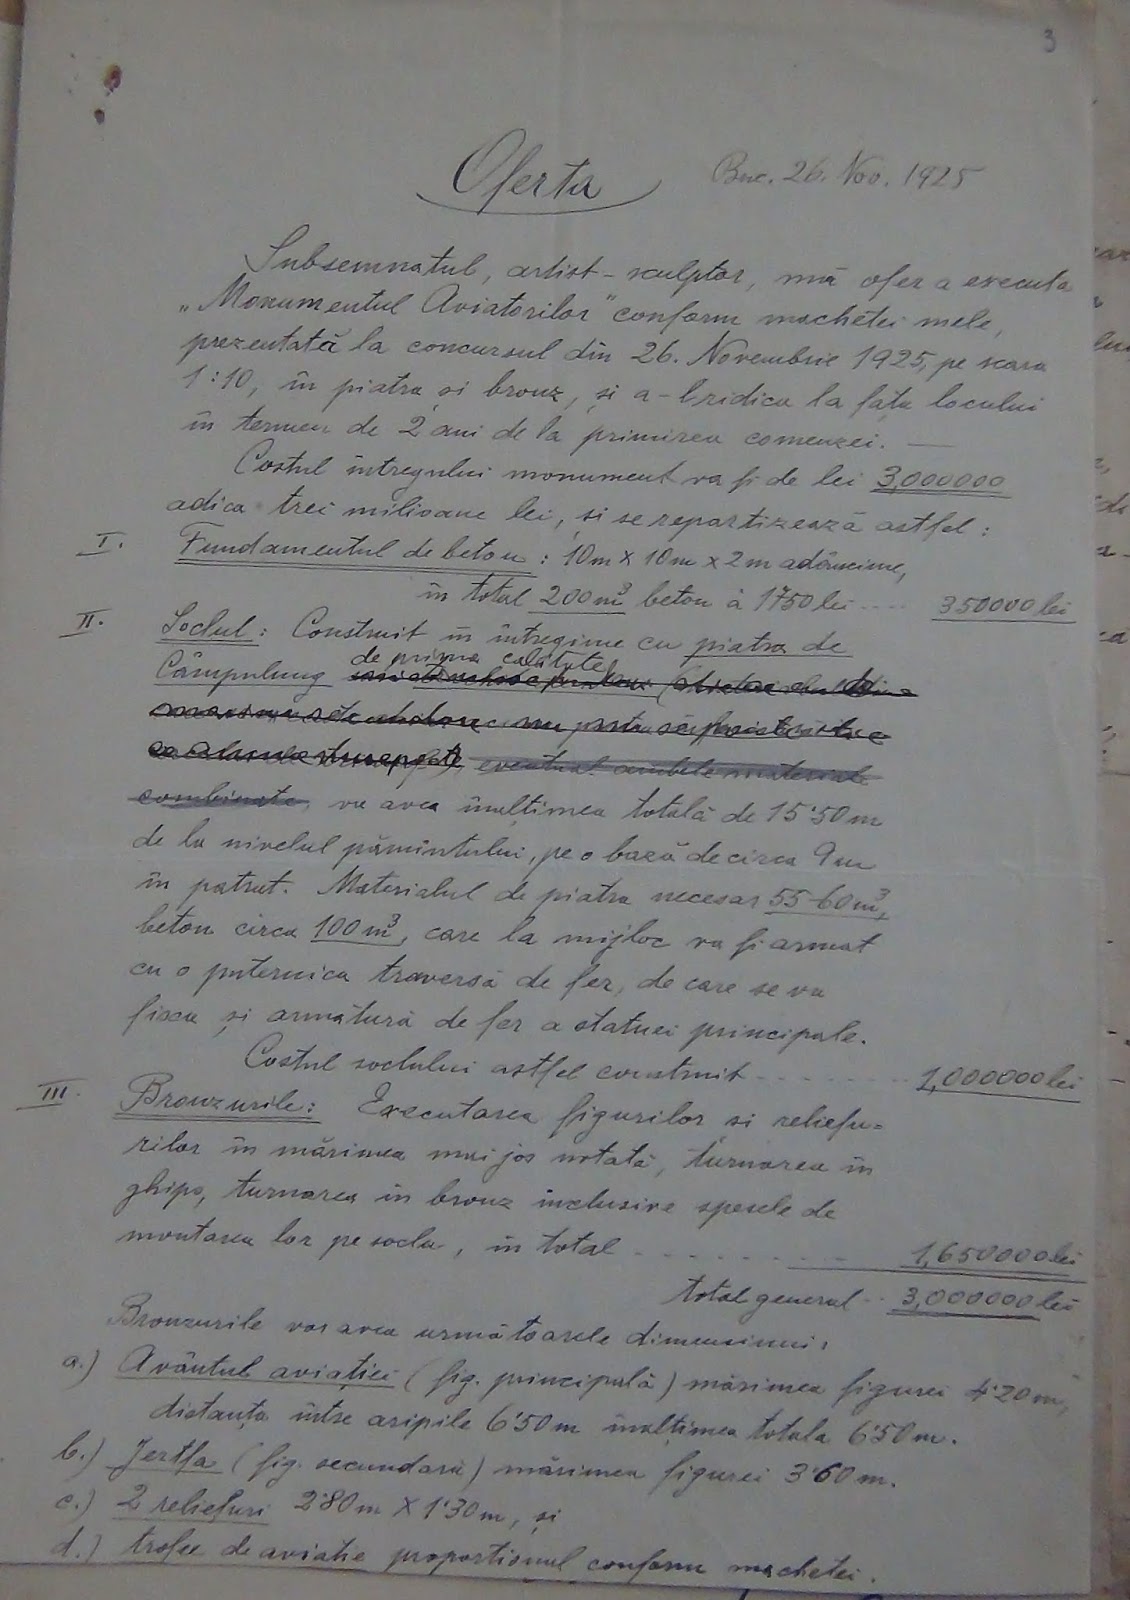 3
Oferta
Buc. 26. Nov. 1925
Subsemnatul, artist-sculptor, mă ofer a executa
„Monumentul Aviatorilor" conform machetei mele,
prezentată la concursul din 26. Novembrie 1925, pe scara
1:10, în piatra și bronz, și a-l ridica la fața locului
în termen de 2 ani de la primirea comenzei. —
Costul întregului monument va fi de lei 3,000000
adica trei milioane lei, și se repartizează astfel:
I. Fundamentul de beton: 10m x 10m x 2m adâncime,
în total 200m³ beton à 1750 lei .... 350000 lei
II. Soclul: Construit în întregime cu piatra de
de prima calitate
Câmpulung
eventual ambele material
combinate, va avea înălțimea totală de 15'50m
de la nivelul pămîntului, pe o bază de circa 9m
în patrat. Materialul de piatra necesar 55-60m³,
beton circa 100m³, care la mijloc va fi armat
cu o puternica traversă de fer, de care se va
fixa și armătură de fer a statuei principale.
Costul soclului astfel construit ........ 1,000000 lei
III. Bronzurile: Executarea figurilor si reliefu=
rilor în mărimea mai jos notată, turnarea în
ghips, turnarea în bronz inclusive spesele de
montarea lor pe soclu, în total ........ 1,650000 lei
total general .. 3,000000 lei
Bronzurile vor avea următoarele dimensiuni:
a.) Avântul aviației (fig. principală) mărimea figurei 4'20m,
distanța între aripile 6'50m înălțimea totala 6'50m.
b.) Jertfa (fig. secundară) mărimea figurei 3'60m.
c.) 2 reliefuri 2'80m X 1'30m, și
d.) trofee de aviatie proportional conform machetei.